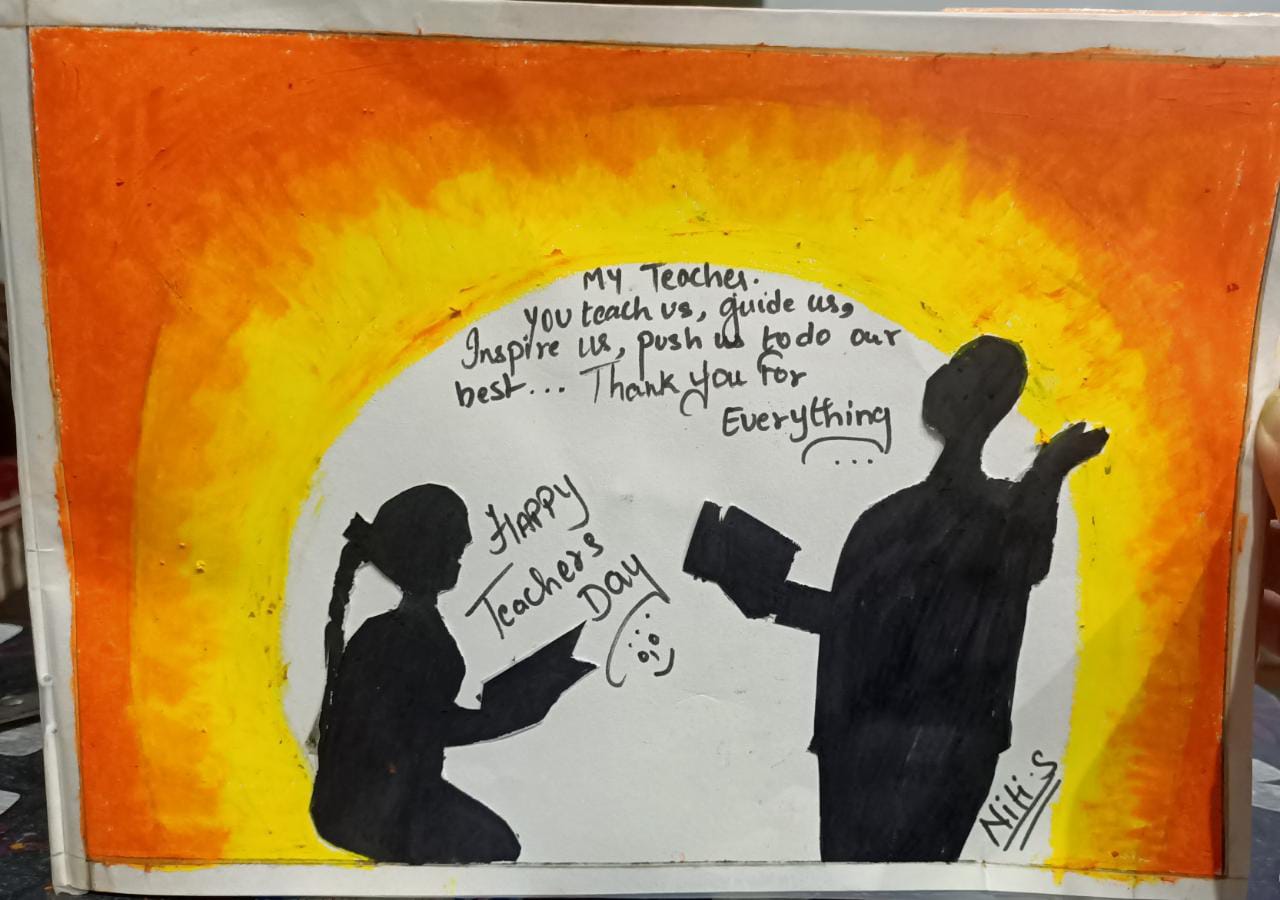 My Teacher.
You teach us, guide us,
Inspire us, push us to do our
best... Thank you for
Everything
...
HAPPY
Teachers
Day
Niti.S